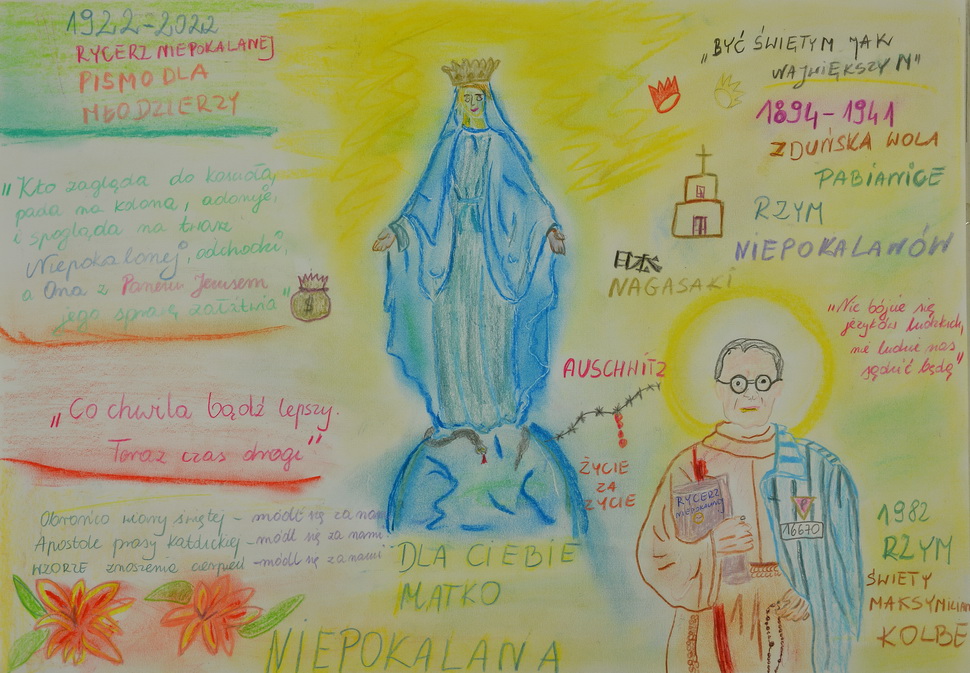 1922-2022
RYCERZ NIEPOKALANEJ
PISMO DLA
MŁODZIERZY
„Kto zagląda do kościoła,
pada na kolana, adoruje,
i spogląda na twarz
Niepokalanej, odchodzi,
a Ona z Panem Jezusem
jego sprawę załatwia"
$
„Co chwila bądź lepszy.
Teraz czas drogi"
Obrońco wiary świętej - módl się za nami
Apostole prasy katolickiej - módl się za nami
WZORZE znoszenia cierpień - módl się za nami
DLA CIEBIE
MATKO
NIEPOKALANA
„BYĆ ŚWIĘTYM JAK
NAJWIĘKSZYM"
1894-1941
ZDUŃSKA WOLA
PABIANICE
RZYM
NIEPOKALANÓW
NAGASAKI
AUSCHWITZ
ŻYCIE
ZA
ŻYCIE
„Nie bójcie się
języków ludzkich,
nie ludzie nas
sądzić będą"
RYCERZ
NIEPOKALANEJ
P
16670
1982
RZYM
ŚWIĘTY
MAKSYMILIAN
KOLBE